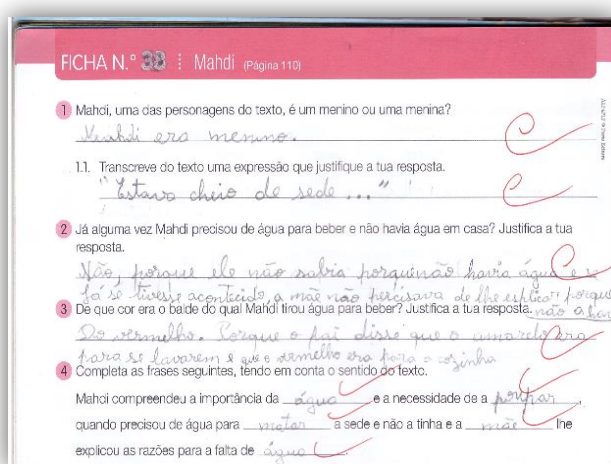 FICHA N.º 38 Mahdi (Página 110)
1 Mahdi, uma das personagens do texto, é um menino ou uma menina?
Mahdi era menino.
1.1. Transcreve do texto uma expressão que justifique a tua resposta.
"Estava cheio de sede ..."
2 Já alguma vez Mahdi precisou de água para beber e não havia água em casa? Justifica a tua
resposta.
Não, porque ele não sabia porque não havia água e s
já se tivesse acontecido, a mãe não percisava de lhe esplicar porque
não a hav
3 De que cor era o balde do qual Mahdi tirou água para beber? Justifica a tua resposta.
Do vermelho. Porque o pai disse que o amarelo era
para se lavarem e que o vermelho era para a cozinha
4 Completa as frases seguintes, tendo em conta o sentido do texto.
Mahdi compreendeu a importância da água e a necessidade de a poupar,
quando precisou de água para matar a sede e não a tinha e a mãe lhe
explicou as razões para a falta de água.